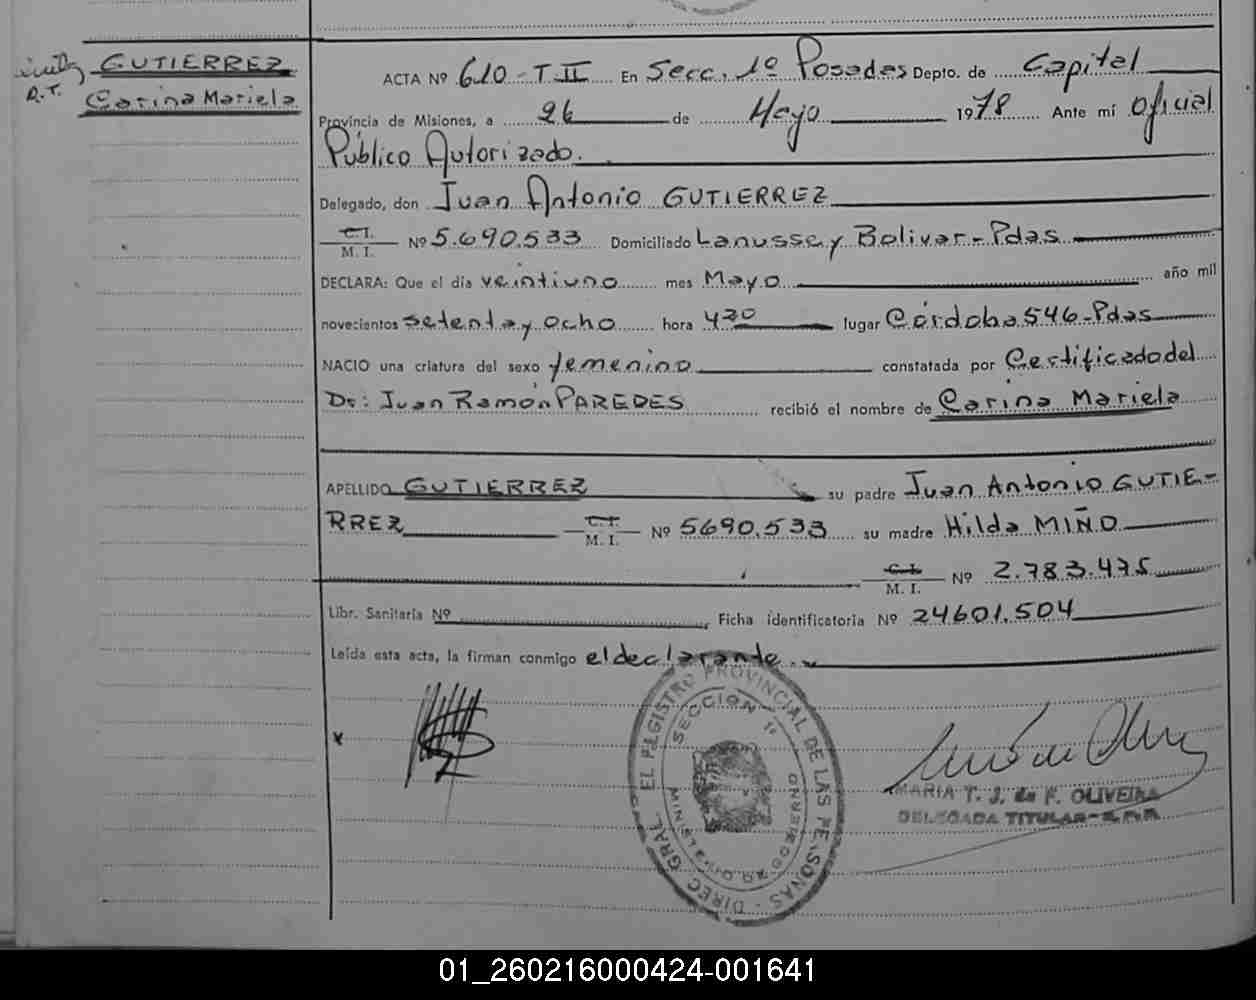 GUTIERREZ
Carina Mariela
A.T.
ACTA Nº 610 - T II En Secc. 1º Posadas Depto. de Capital
Provincia de Misiones, a 26 de Mayo 1978 Ante mí Oficial
Público Autorizado.
Delegado, don Juan Antonio GUTIERREZ
C.I.
M. I. Nº 5.690.533 Domiciliado Lanusse y Bolivar - Pdas
DECLARA: Que el día veintiuno mes Mayo año mil
novecientos setenta y ocho hora 430 lugar Córdoba 546 - Pdas
NACIO una criatura del sexo femenino constatada por Certificado del
Dr: Juan Ramón PAREDES recibió el nombre de Carina Mariela
APELLIDO GUTIERREZ su padre Juan Antonio GUTIE-
RREZ C.I.
M. I. Nº 5690.533 su madre Hilda MIÑO
C.I.
M. I. Nº 2.783.475
Libr. Sanitaria Nº Ficha identificatoria Nº 24601.504
Leída esta acta, la firman conmigo el declarante.
x
DIREC. GRAL. EL REGISTRO PROVINCIAL DE LAS PERSONAS
SECCION 1º
MARIA T. J. de F. OLIVEIRA
DELEGADA TITULAR - R.P.P.
01_260216000424-001641